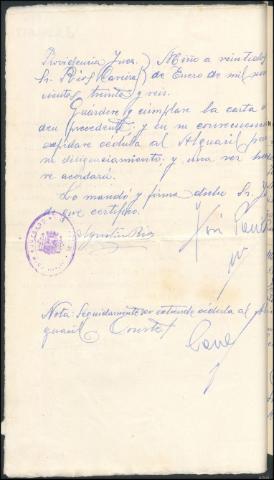 Providencia Juez
Sr. Rios Caneiro
Miño a veintidos
de Enero de mil nove
cientos treinta y seis.
Guárdese y cúmplase la carta o
den precedente, y en su consecuencia
expídase cédula al Alguacil para
su diligenciamiento, y una vez he
se acordará.
Lo mandó y firma dicho Sr. J
de que certifico.
Agustin Rios
José
Nota: Seguidamente se extiende cédula al Al
guacil Conste